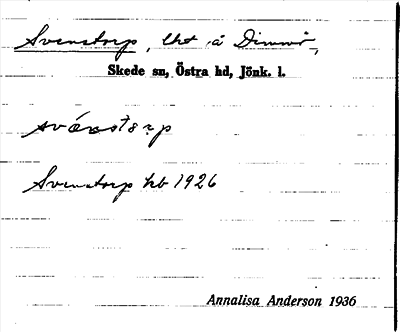 Svenstorp, lht å Dimmö,
Skede sn, Östra hd, Jönk. l.
Svenstorp hb 1926
Annalisa Anderson 1936